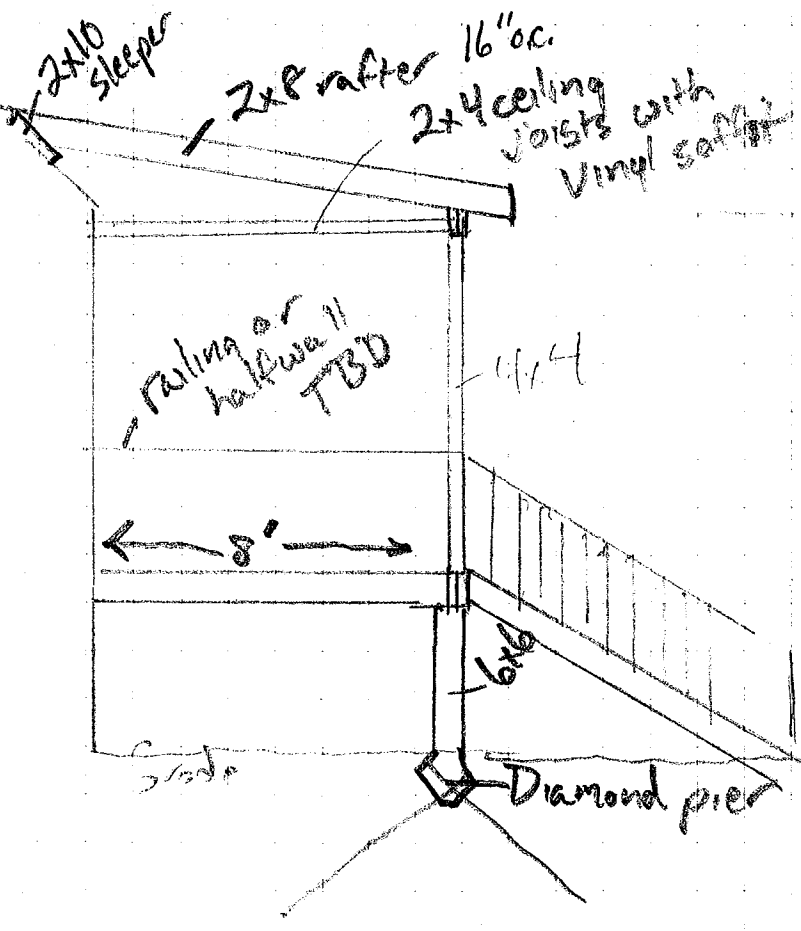 2x10
sleeper
2x8 rafter 16" o.c.
2x4 ceiling
joists with
Vinyl soffit
railing or
halfwall
TBD
4x4
8'
6x6
Grade
Diamond pier